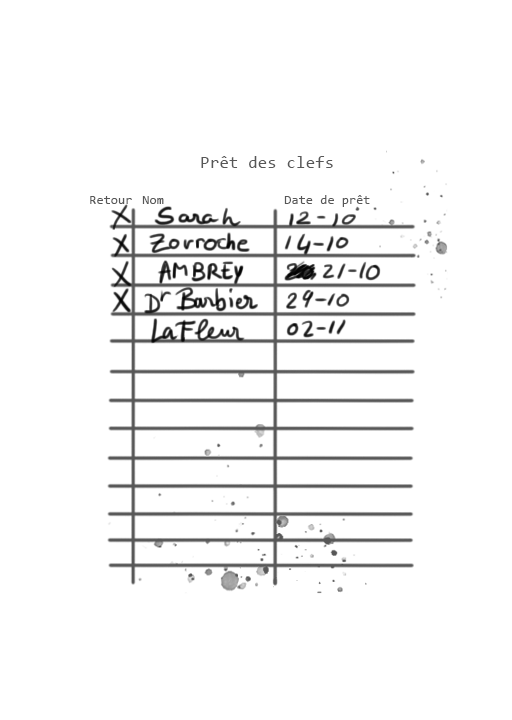 Prêt des clefs
Retour Nom Date de prêt
X Sarah 12-10
X Zorroche 14-10
X AMBREY 21-10
X Dr Barbier 29-10
LaFleur 02-11